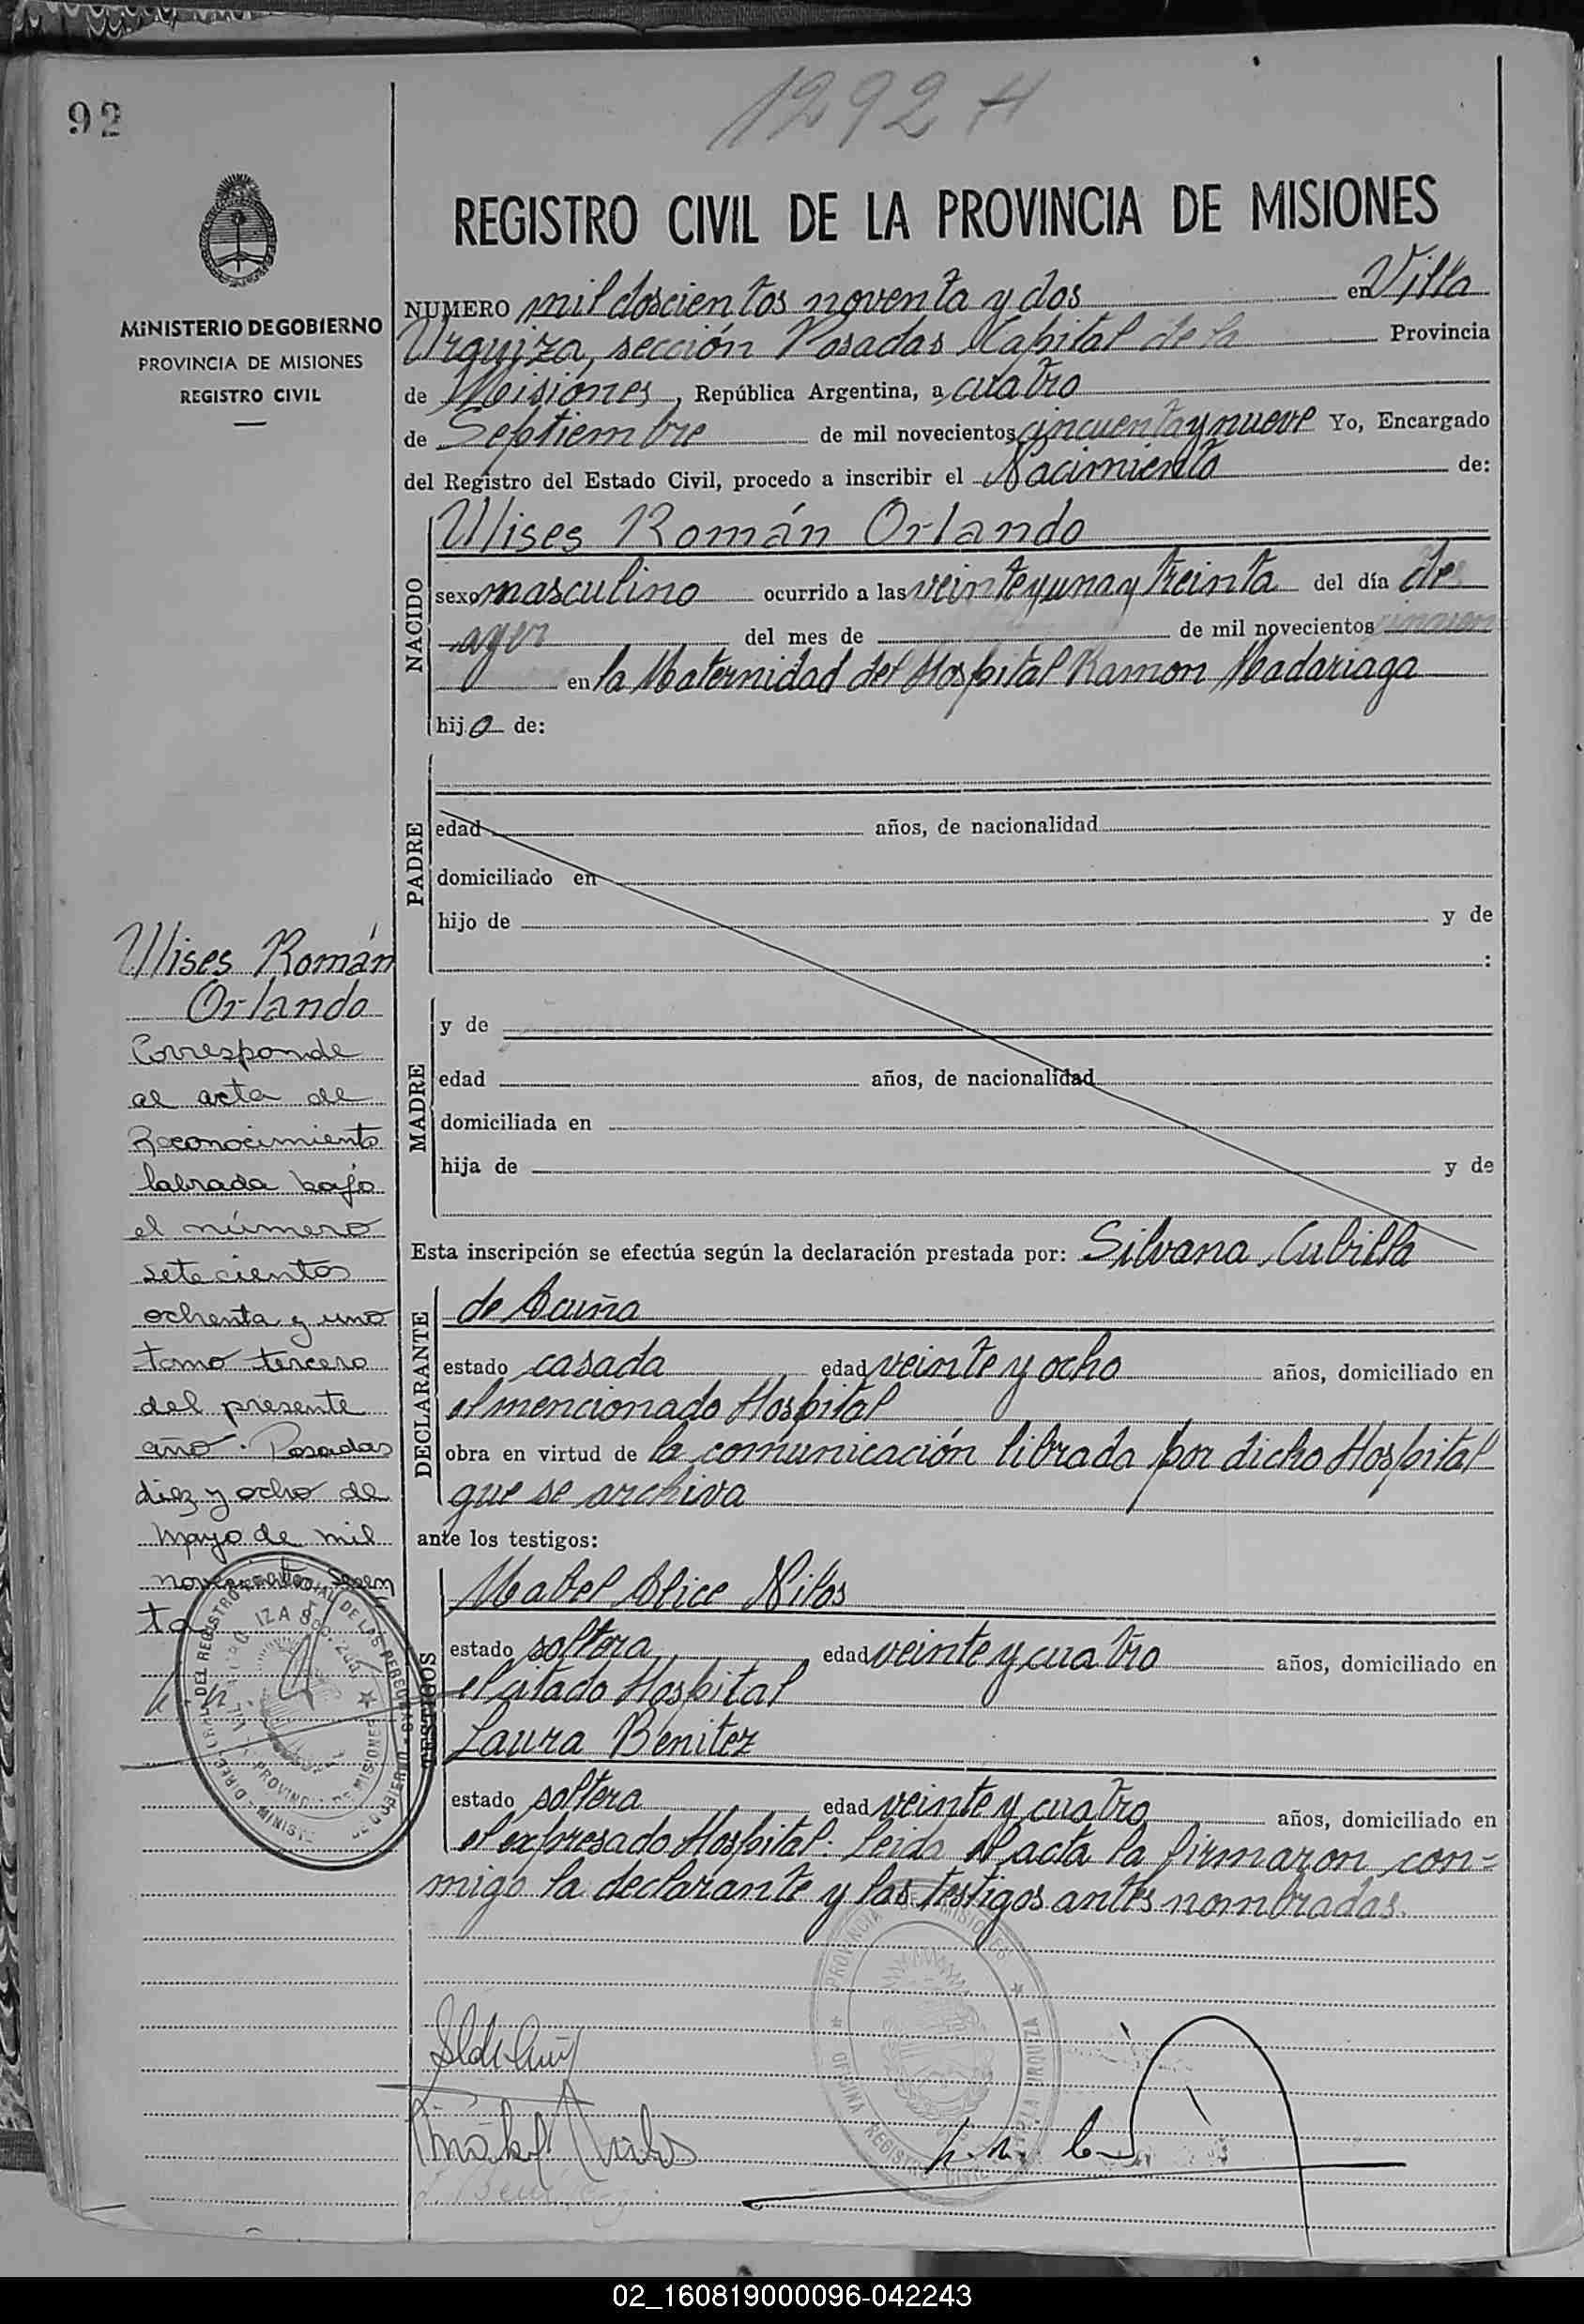 92
1292 H
REGISTRO CIVIL DE LA PROVINCIA DE MISIONES
MINISTERIO DE GOBIERNO
PROVINCIA DE MISIONES
REGISTRO CIVIL
NUMERO mil doscientos noventa y dos en Villa
Urquiza, sección Posadas Capital de la Provincia
de Misiones, República Argentina, a cuatro
de Septiembre de mil novecientos cincuenta y nueve Yo, Encargado
del Registro del Estado Civil, procedo a inscribir el Nacimiento de:
NACIDO
Ulises Román Orlando
sexo masculino ocurrido a las veinte y una y treinta del día de
ayer del mes de de mil novecientos
en la Maternidad del Hospital Ramon Madariaga
hijo de:
PADRE
edad años, de nacionalidad
domiciliado en
hijo de y de
:
MADRE
y de
edad años, de nacionalidad
domiciliada en
hija de y de
Esta inscripción se efectúa según la declaración prestada por: Silvana Cubilla
DECLARANTE
de Acuña
estado casada edad veinte y ocho años, domiciliado en
el mencionado Hospital
obra en virtud de la comunicación librada por dicho Hospital
que se archiva
ante los testigos:
TESTIGOS
Mabel Alice Nilos
estado soltera edad veinte y cuatro años, domiciliado en
el citado Hospital
Laura Benitez
estado soltera edad veinte y cuatro años, domiciliado en
el expresado Hospital: Leida el acta la firmaron con-
migo la declarante y las testigos antes nombradas.
Ulises Román
Orlando
Corresponde
al acta de
Reconocimiento
labrada bajo
el número
setecientos
ochenta y uno
tomo tercero
del presente
año. Posadas
diez y ocho de
Mayo de mil
novecientos sesen
ta
PROVINCIA DE MISIONES
OFICINA REGISTRO CIVIL
02_160819000096-042243